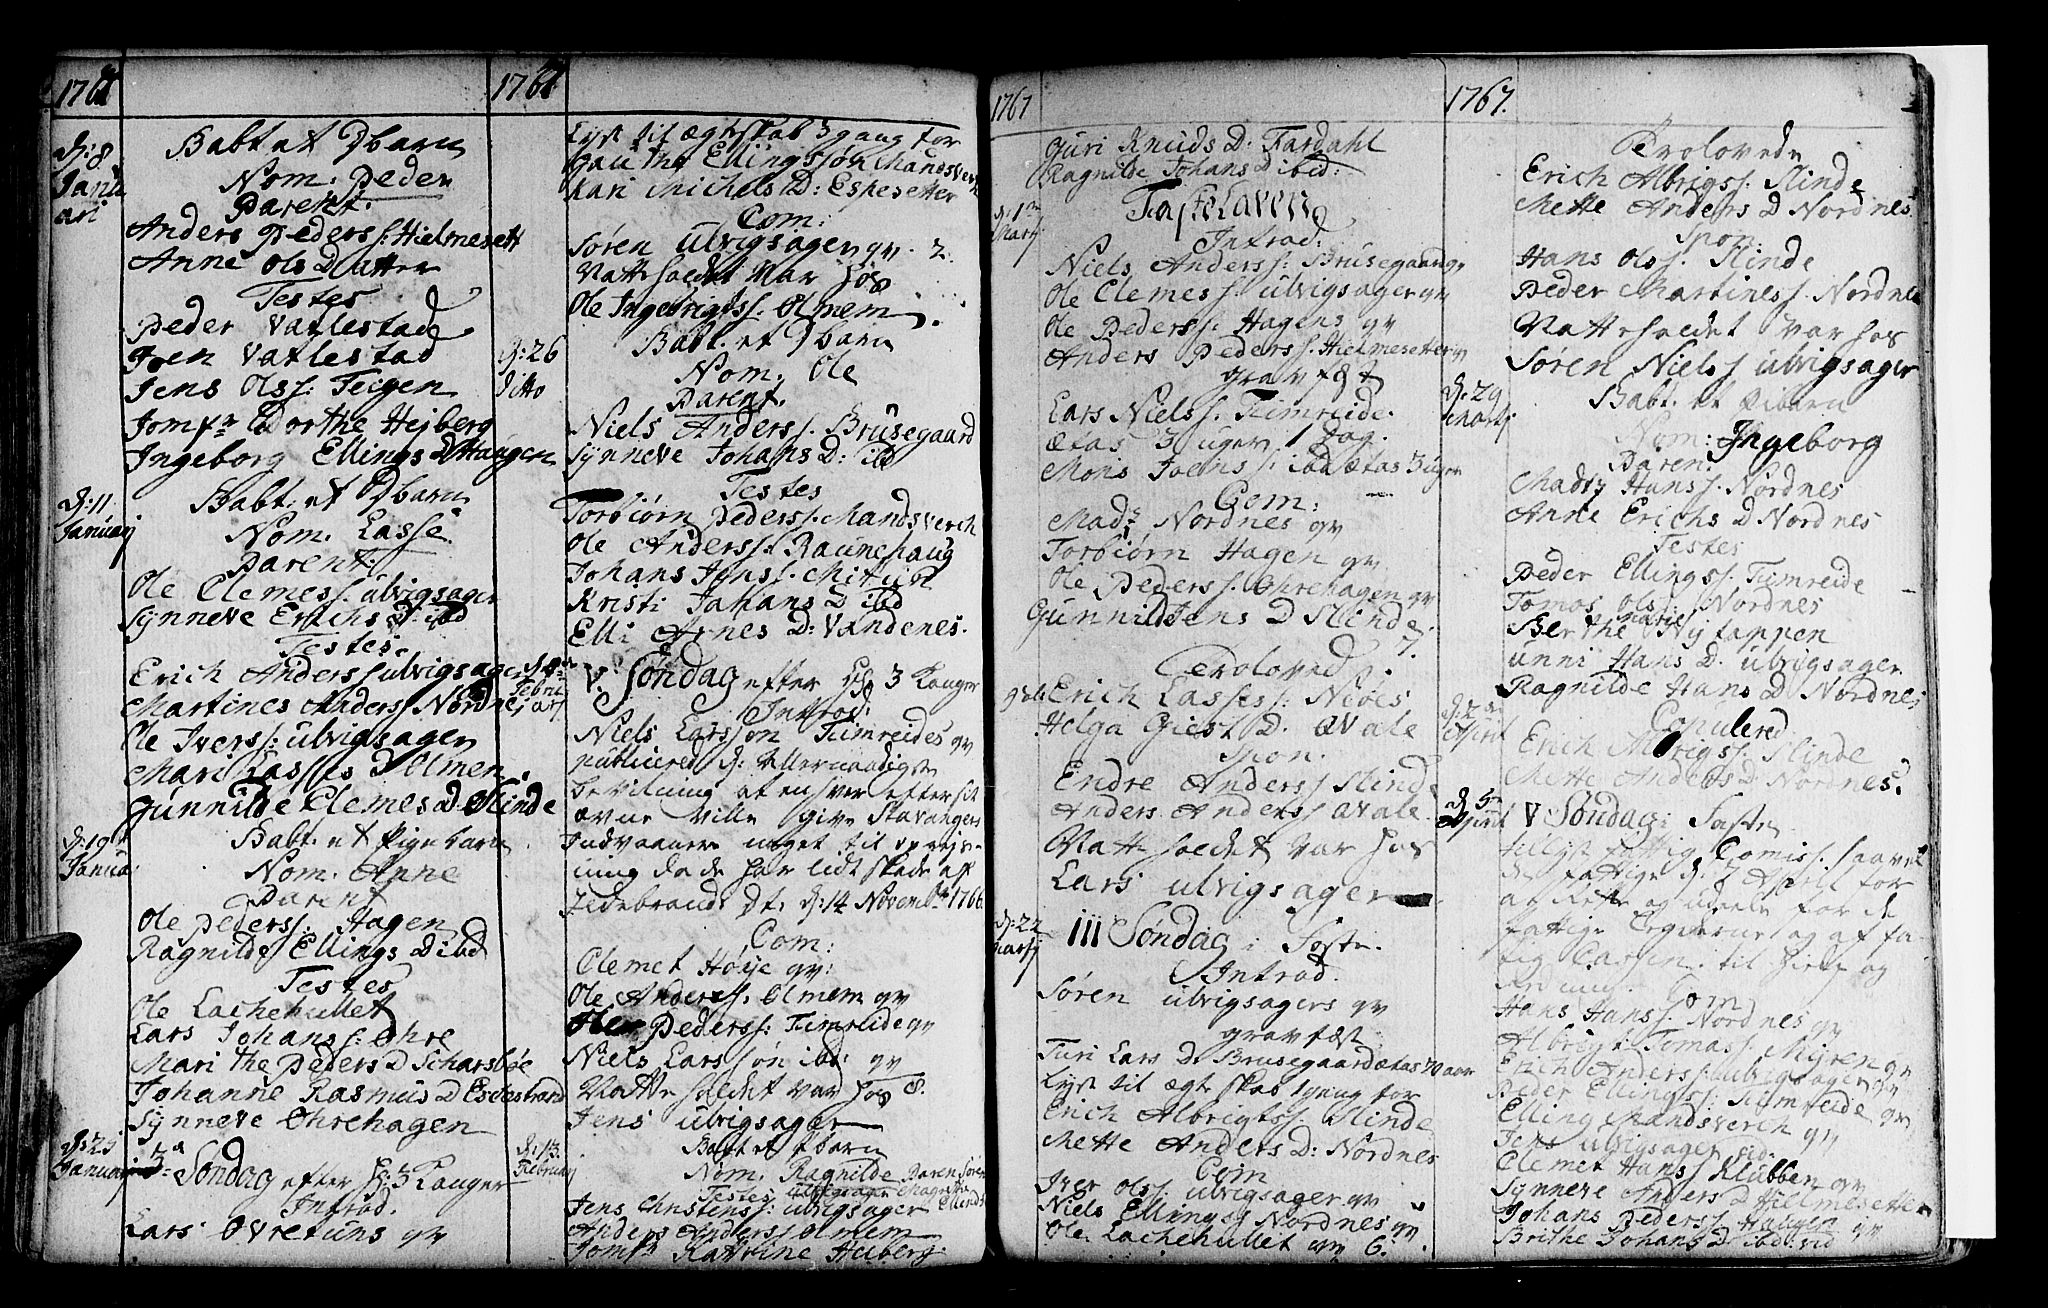 1767
d: 8
Janu
ari
Babt. et Dbarn
Nom: Peder
Parent.
Anders Peders s: Hielmesett
Anne Ols Datter
Testes
Peder Vatlestad
Joen Vatlestad
Jens Ols s: Teigen
Jomfr Dorthe Heiberg
Ingeborg Ellings D Haugen
d: 11
Januarj
Babt. et Dbarn
Nom. Lasse
Parent:
Ole Clemes s. ulvigsager
Synneve Erichs D: ibd
Testes
Erich Anders s ulvigsager
Martines Anders s Nordnes
Ole Ivers s: ulvigsager
Mari Lasses D Olmen
Gunnilde Clemes D. Slinde
d: 19
Janua
Babt. et Pigebarn
Nom. Anne
Parent
Ole Peders s: Hagen
Ragnilde Ellings D ibd
Testes
Ole Lachehullet
Lars Johans s: Ohre
Marithe Peders D Scharsbøe
Johanne Rasmus D Eschestrand
Synneve Ohrehagen
d: 25
Januarj
3 Søndag efter H: 3 Konger
Introd.
Lars Ovretuns qv
1767
Lyst til ægteskab 3 gang for
Gauthe Ellings søn Mandsverch
Kari Michels D: Espesetter
Com:
Søren ulvigsagers qv. 2.
Vatteholdet var hos
Ole Ingebrigts s. Olmem
d: 26
Ditto
Babt. et Dbarn
Nom. Ole
Parent.
Niels Anders s. Brusegaard
Synneve Johans D: ibd
Testes
Torbiørn Peders s. Mandsverch
Ole Anders s. Raunehaug
Johans Jens s. Mitun
Kristi Johans D ibd
Elli Arnes D: Vandenes.
Febru
arj
V. Søndag efter H 3 Konger
Introd:
Niels Larssøn Timreides qv
publicered d: Allernaadigste
bevilning at enhver efter sit
ævne ville give Stavangers
Indvaanere noget til opreis-
ning da de har lidt skade af
Ildebrand Dt. d: 14 Novembr 1766.
Com:
Clemet Høye qv:
Ole Anders s. Olmem qv
Ole Peders s: Timreide qv
Niels Lars søn ibd: qv
Vatteholdet var hos 8.
Jens ulvigsager
d: 13.
Februarj
Babt et Dbarn
Nom. Ragnilde Paren Søren
Testes ulvigsager Magretha
Jens Christens s: ulvigsager Ellends D
Anders Anders s Olmem
Jomfr Katrine Heiberg
1767
Guri Knuds D: Fardahl
Ragnilde Johans D ibid:
d: 1
Martj
Fastelaven
Introd:
Niels Anders s: Brusegaards qv
Ole Clemes s ulvigsager qv
Ole Peders s: Hagens qv
Anders Peders s. Hielmesetter qv
gravfæst
Lars Niels s. Timreide.
ætas 3 uger 1 Dag.
Mons Joens s: ibd ætas 3 uger
Com:
Mads Nordnes qv
Torbiørn Hagen qv.
Ole Peders s. Ohrehagen qv
Gunnild Jens D Slinde.
7.
Trolovede.
Erich Lasses s: Neses
Helga Giest D. Qvale
Spon:
Endre Anders s Slinde
Anders Anders s Qvale.
Vatteholdet var hos
Lars ulvigsager
d: 22
Martj
III Søndag i Faste.
Introd.
Søren ulvigsagers qv
gravfæst.
Turi Lars D. Brusegaard ætas 70 aar
Lyst til ægteskab 1 gang for
Erich Albrigts s. Slinde
Mette Anders D: Nordnes
Com
Iver Ols s. ulvigsager qv
Niels Ellings s Nordnes qv
Ole Lachehullet qv 6.
1767.
Trolovede
Erich Albrigs s. Slinde
Mette Anders D Nordnes
Spon:
Hans Ols s. Slinde
Peder Martines s. Nordnes
Vatteholdet var hos
Søren Niels s ulvigsager
d: 29
Martj
Babt. et Pibarn
Nom: Ingeborg
Paren:
Mads Hans s. Nordnes
Anne Erichs D Nordnes
Testes
Peder Ellings s. Timreide
Tomas Ols s. Nordnes
Berthe Marie Nytappen
unni Hans D. ulvigsager
Ragnilde Hans D Nordnes
April
Copulered
Erich Albrigs s: Slinde
Mette Anders D: Nordnes.
d. 5
April
V Søndag i Faste
Tillyst fattig Comiss: haaves
d: 7 April for
at sætte og udeele for de
fattige
Com
Hans Hans s. Nordnes qv
Albrigt Tomas s. Myren qv
Erich Anders s: ulvigsager qv
Peder Ellings s. Timreide qv
Elling Mandsverch qv
Jens ulvigsager
Clemet Hans s Klubben qv
Synneve Anders D Hielmesetter
Johans Peders s Haugen qv
Brithe Johans D ibd